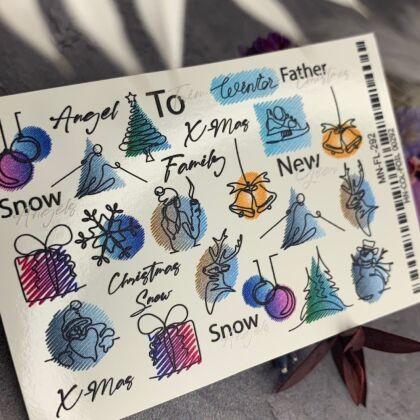 Angel
To
Winter
Father
X-Mas
Family
New
Snow
Angels
Christmas
Snow
Snow
X-Mas
MN-FL-292